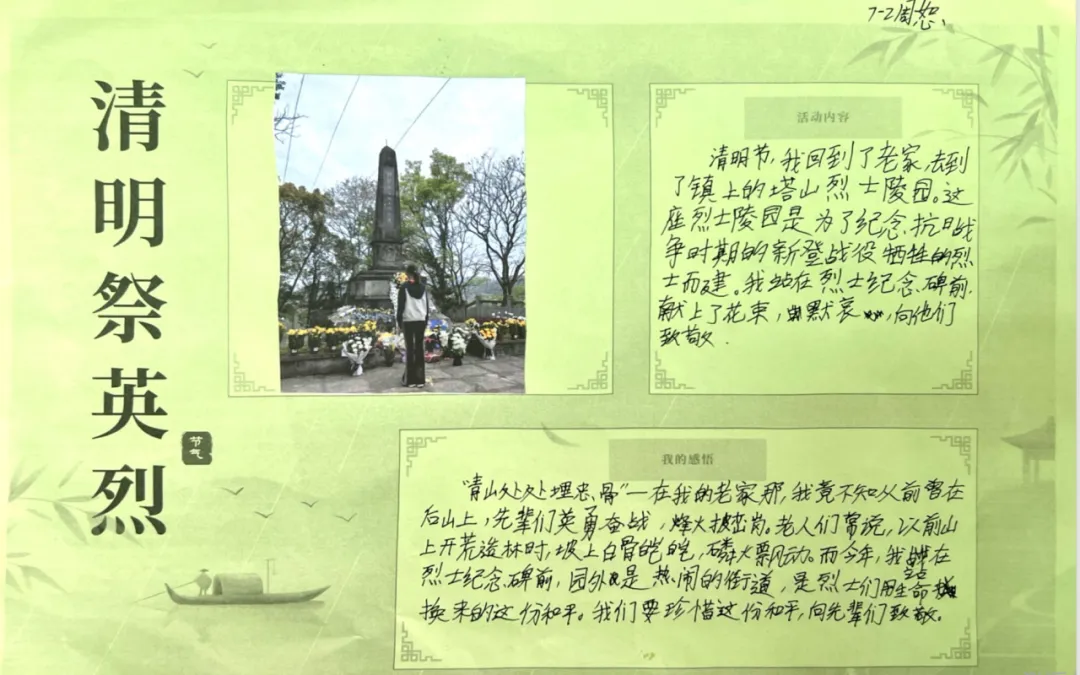 7-2周恕
清明祭英烈
节气
活动内容
清明节,我回到了老家,去到
了镇上的塔山烈士陵园。这
座烈士陵园是为了纪念抗日战
争时期的新登战役牺牲的烈
士而建。我站在烈士纪念碑前,
献上了花束,默哀,向他们
致敬.
我的感悟
“青山处处埋忠骨”—在我的老家那,我竟不知从前曾在
后山上,先辈们英勇奋战,烽火披岗。老人们常说,以前山
上开荒造林时,坡上白骨皑皑,磷火飘动。而今年,我站在
烈士纪念碑前,园外是热闹的街道,是烈士们用生命
换来的这份和平。我们要珍惜这份和平,向先辈们致敬。